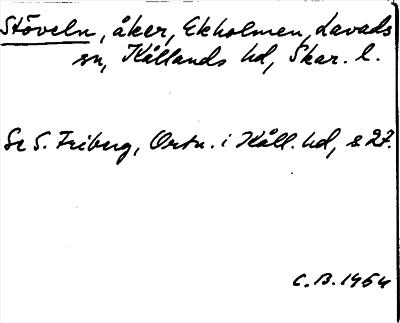 Stöveln, åker, Ekholmen, Lavads
sn, Kållands hd, Skar. l.
Se S. Friberg, Ortn. i Kåll. hd, s. 27.
C.B. 1954